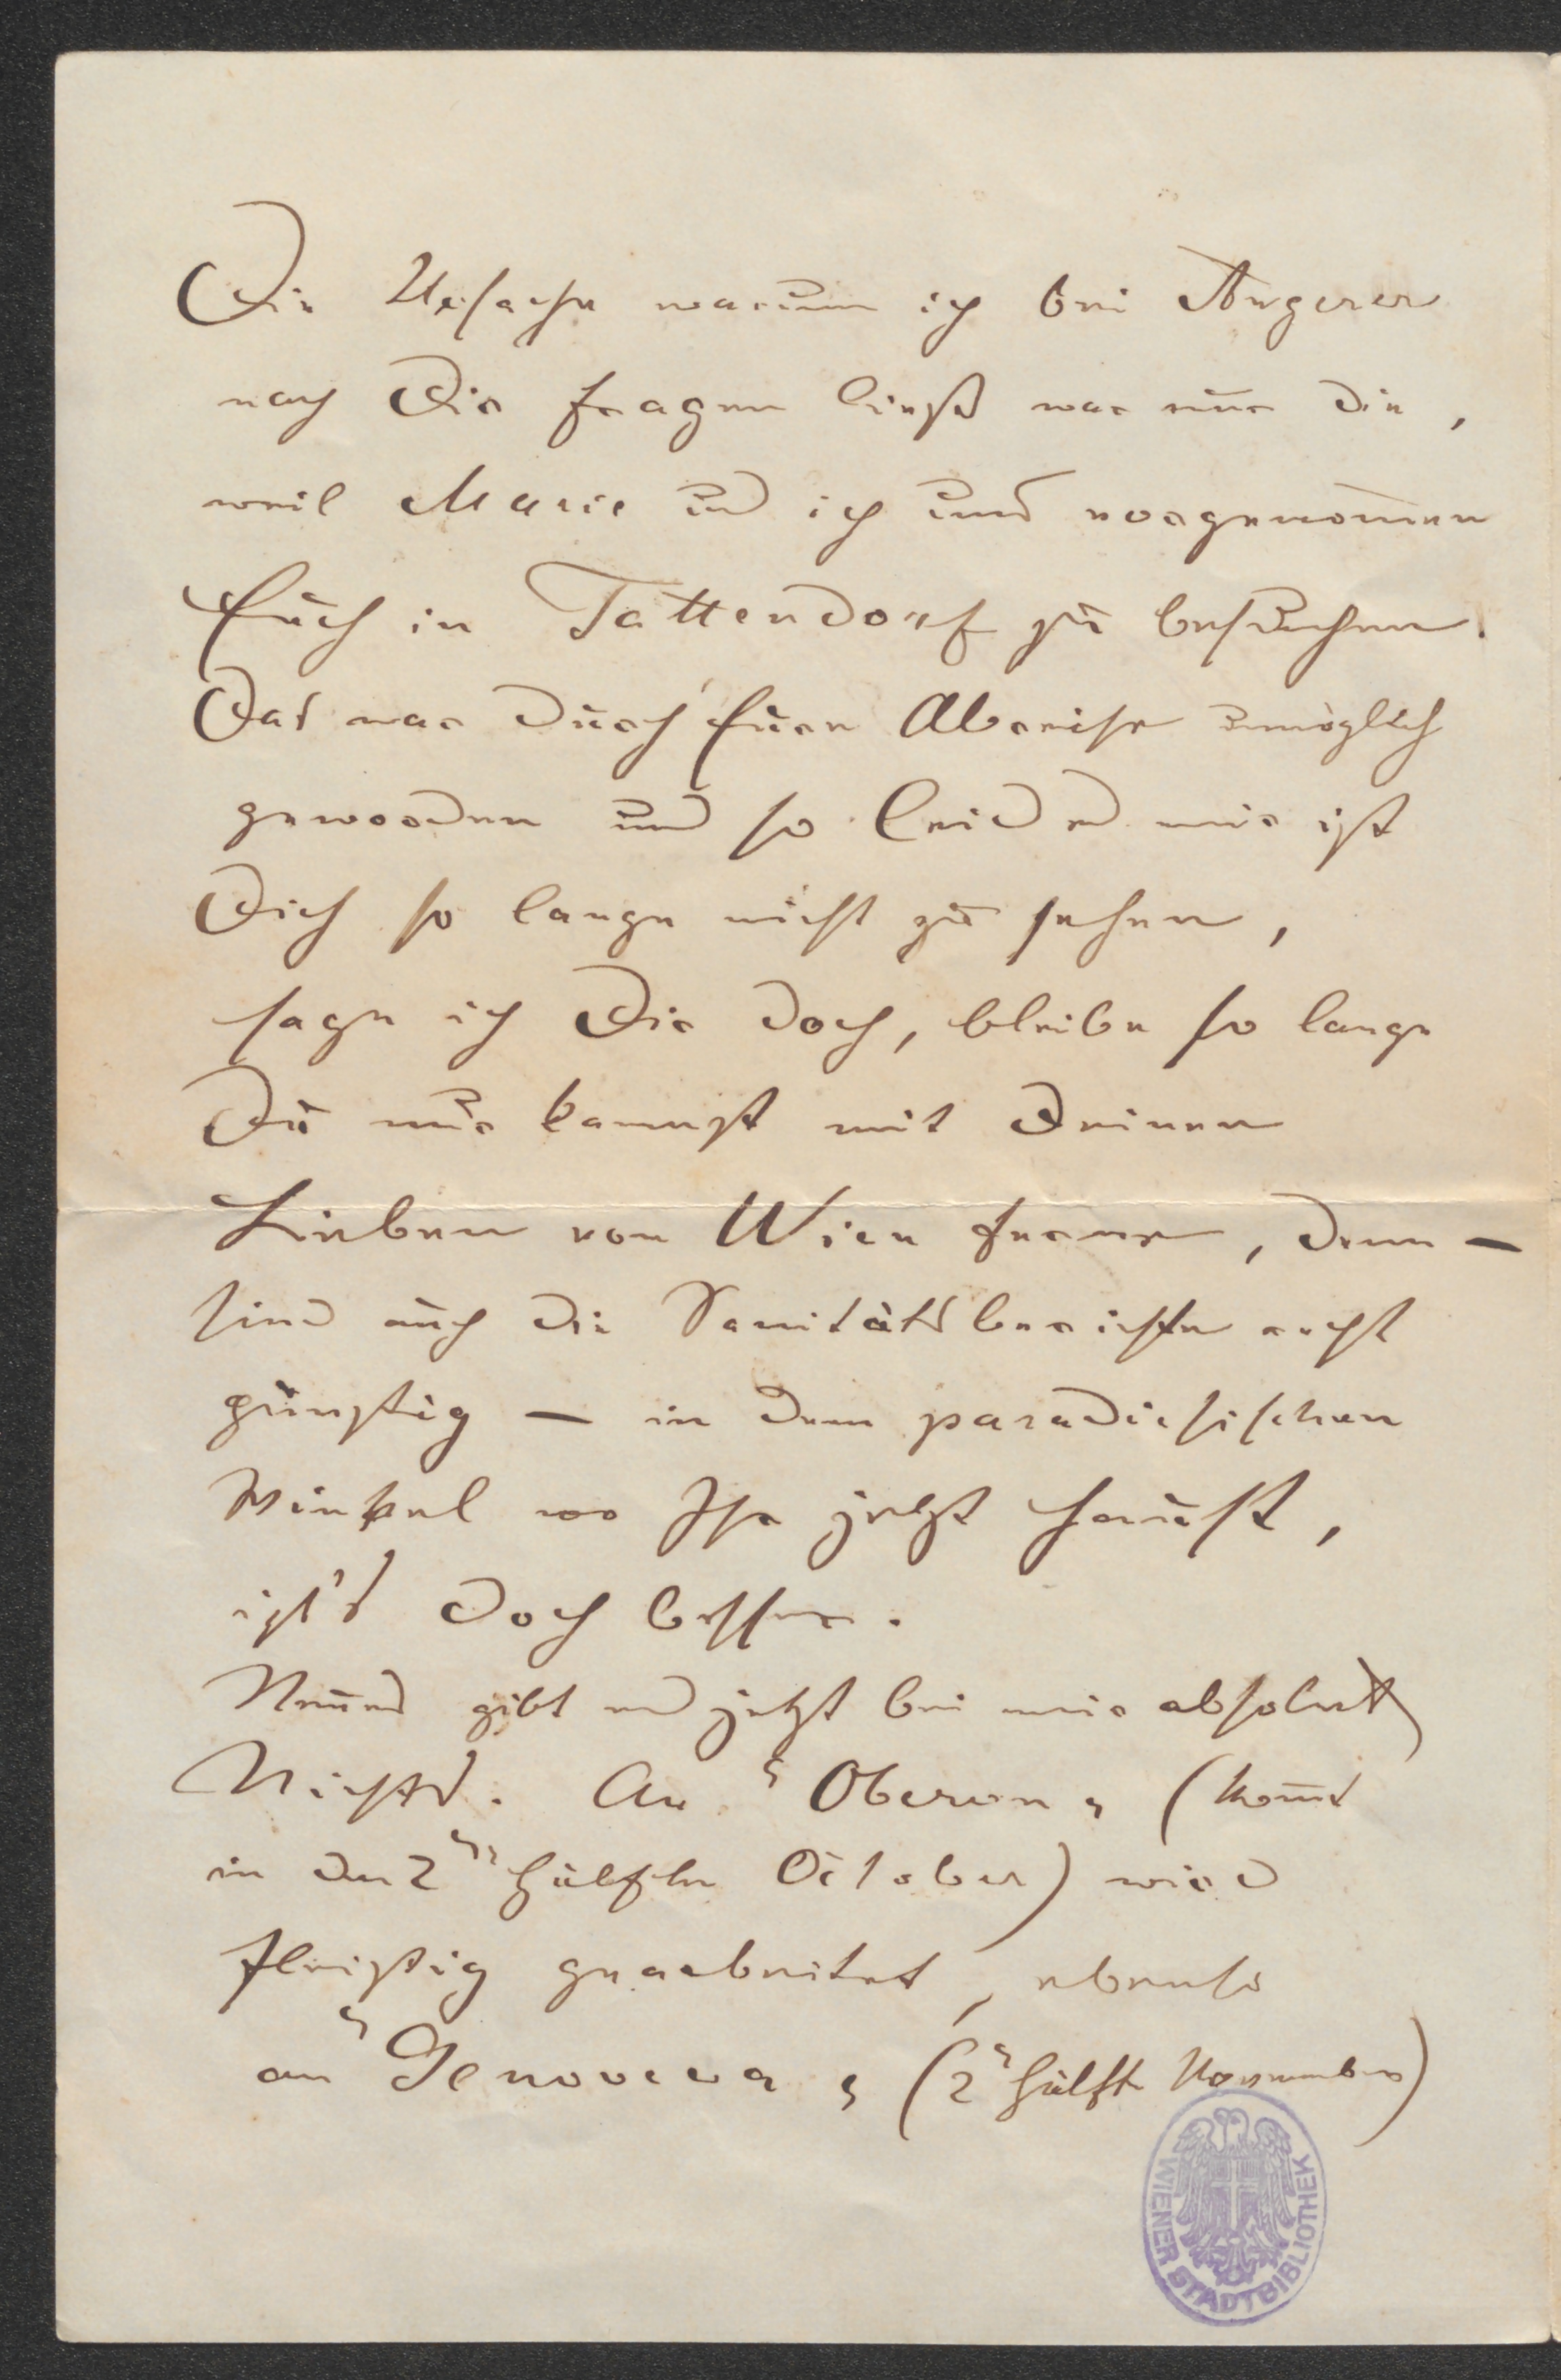 Die Ursache warum ich bei Angerer
nach Dir fragen ließ war nur die,
weil Marie und ich uns vorgenom̄en
Euch in Tattendorf zu besuchen.
Das war durch Eure Abreise unmöglich
geworden und so leid es mir ist
Dich so lange nicht zu sehen,
sage ich Dir doch, bleibe so lange
Du nur kannst mit Deinen
Lieben von Wien ferne, denn –
sind auch die Sanitätsberichte recht
günstig – in dem paradiesischen
Winkel wo Ihr jetzt haust,
ist's doch besser.
Neues gibt es jetzt bei mir absolut
Nichts. An "Oberon" (kom̄t
in der 2ten Hälfte October) wird
fleißig gearbeitet, ebenso
an "Genoveva" (2te Hälfte November)
WIENER STADTBIBLIOTHEK